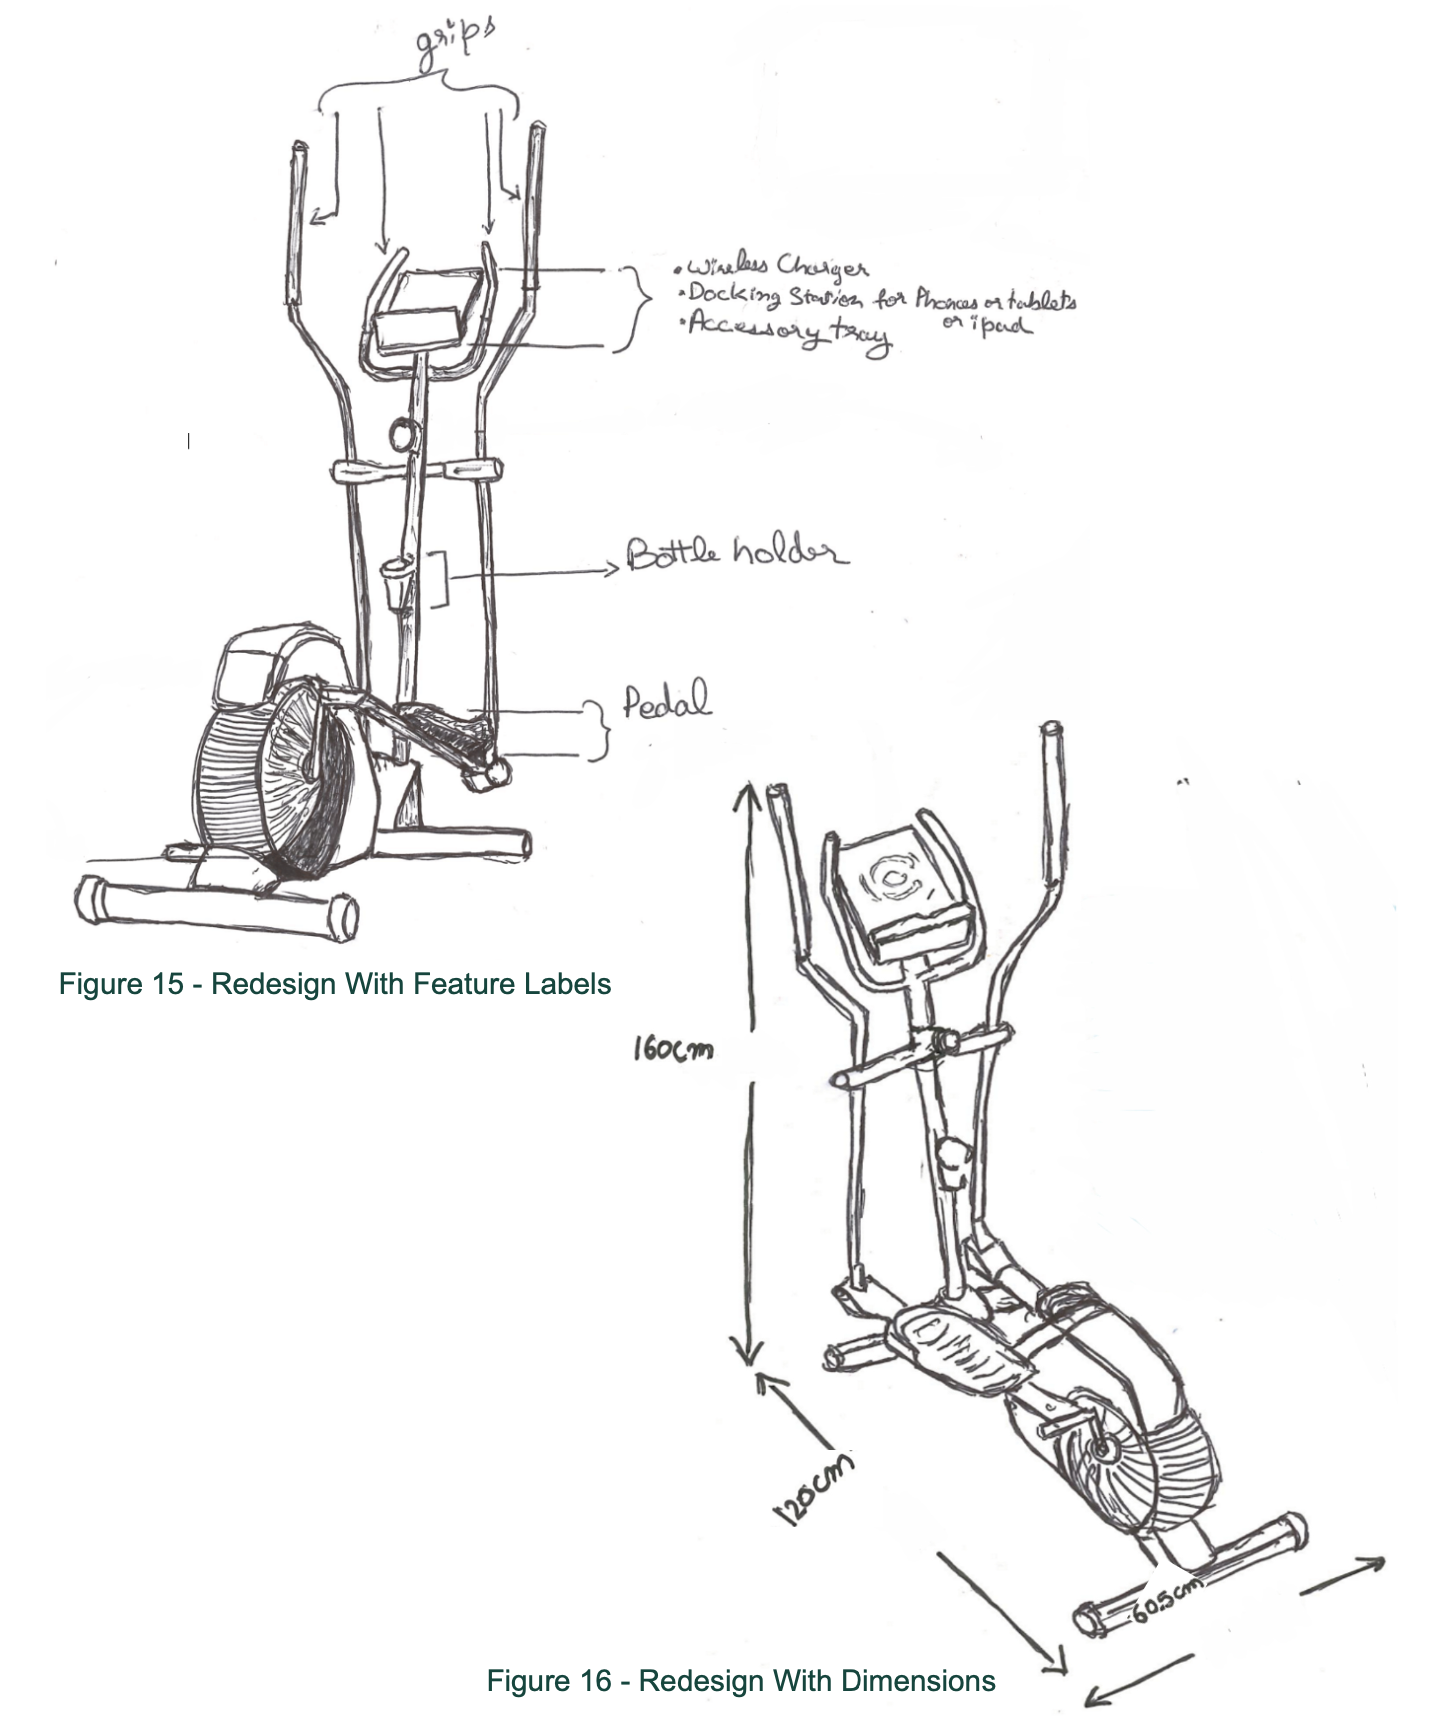 grips
• Wireless Charger
• Docking Station for Phones or tablets
or ipad
• Accessory tray
Bottle holder
Pedal
Figure 15 - Redesign With Feature Labels
160cm
120cm
60.5cm
Figure 16 - Redesign With Dimensions